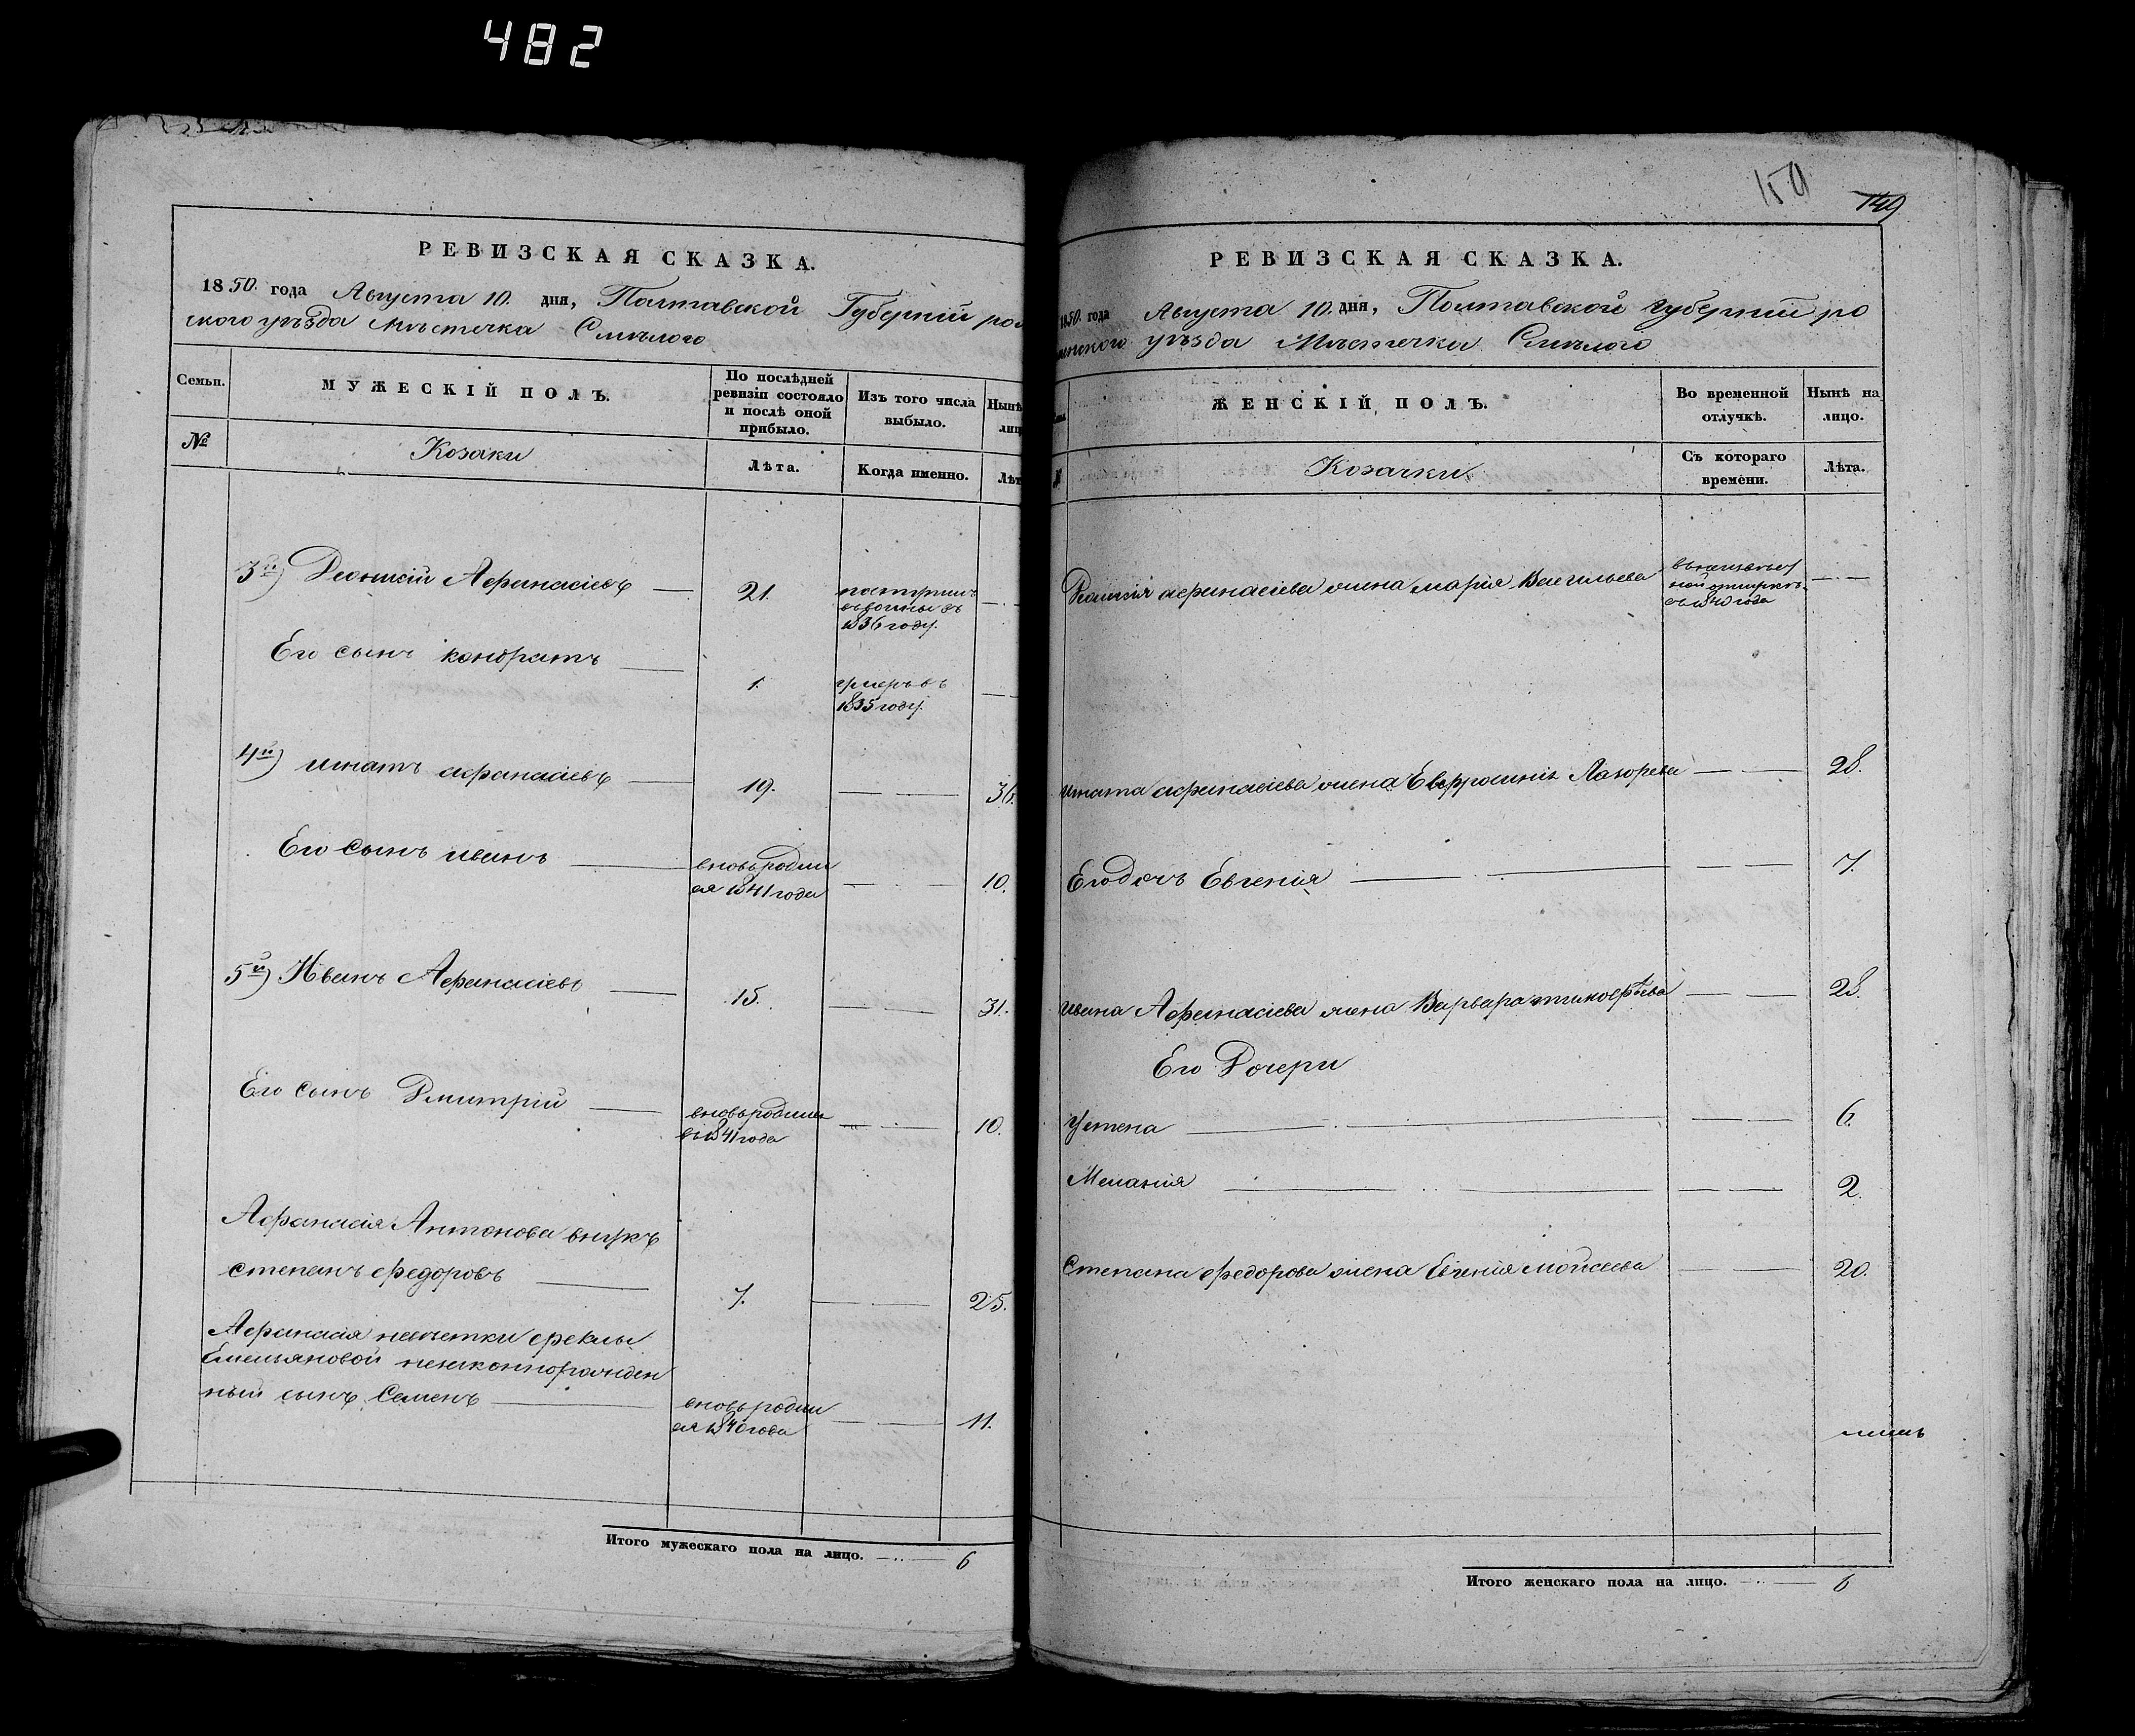 482
РЕВИЗСКАЯ СКАЗКА.
1850. года Августа 10. дня, Полтавской Губерній ром
ского уѣзда Мѣстечка Смѣлого
Семьи.
МУЖЕСКІЙ ПОЛЪ.
По послѣдней
ревизіи состояло
и послѣ оной
прибыло.
Изъ того числа
выбыло.
Нынѣ
лиц
№
Козаки
Лѣта.
Когда именно.
Лѣт
3й) Леонтій Афанасіевъ
21.
1836 году.
Его сынъ кондратъ
1.
умеръ въ
1835 году.
4й) игнатъ афанасіевъ
19.
36.
Его сынъ иванъ
вновьродил
ся 1841 года
10.
5й) Иванъ Афанасіевъ
15.
31.
Его сынъ Дмитрій
вновьродил
1841 года
10.
Афанасія Антонова внукъ
степанъ федоровъ
7.
25.
Афанасія феклы
Емельяновой незаконнорожден
ный сынъ Семенъ
вновьродил
ся 1840 года
11.
Итого мужескаго пола на лицо. 6
150
149
РЕВИЗСКАЯ СКАЗКА.
1850. года Августа 10. дня, Полтавской губерніи ро
менского уѣзда Мѣстечка Смѣлого
ЖЕНСКІЙ ПОЛЪ.
Во временной
отлучкѣ.
Нынѣ на
лицо.
№
Козачки
Съ котораго
времени.
Лѣта.
Леонтія афанасіева жена марія Васильева
съ 1840 года
игната афанасіева жена Евфросинія Лазорева
28.
Его дочь Евгенія
7.
ивана Афанасіева жена Варвара тимофѣева
28.
Его Дочери
Устена
6.
Меланія
2.
Степана федорова жена Евгенія Мойсеева
20.
Итого женскаго пола на лицо. 6